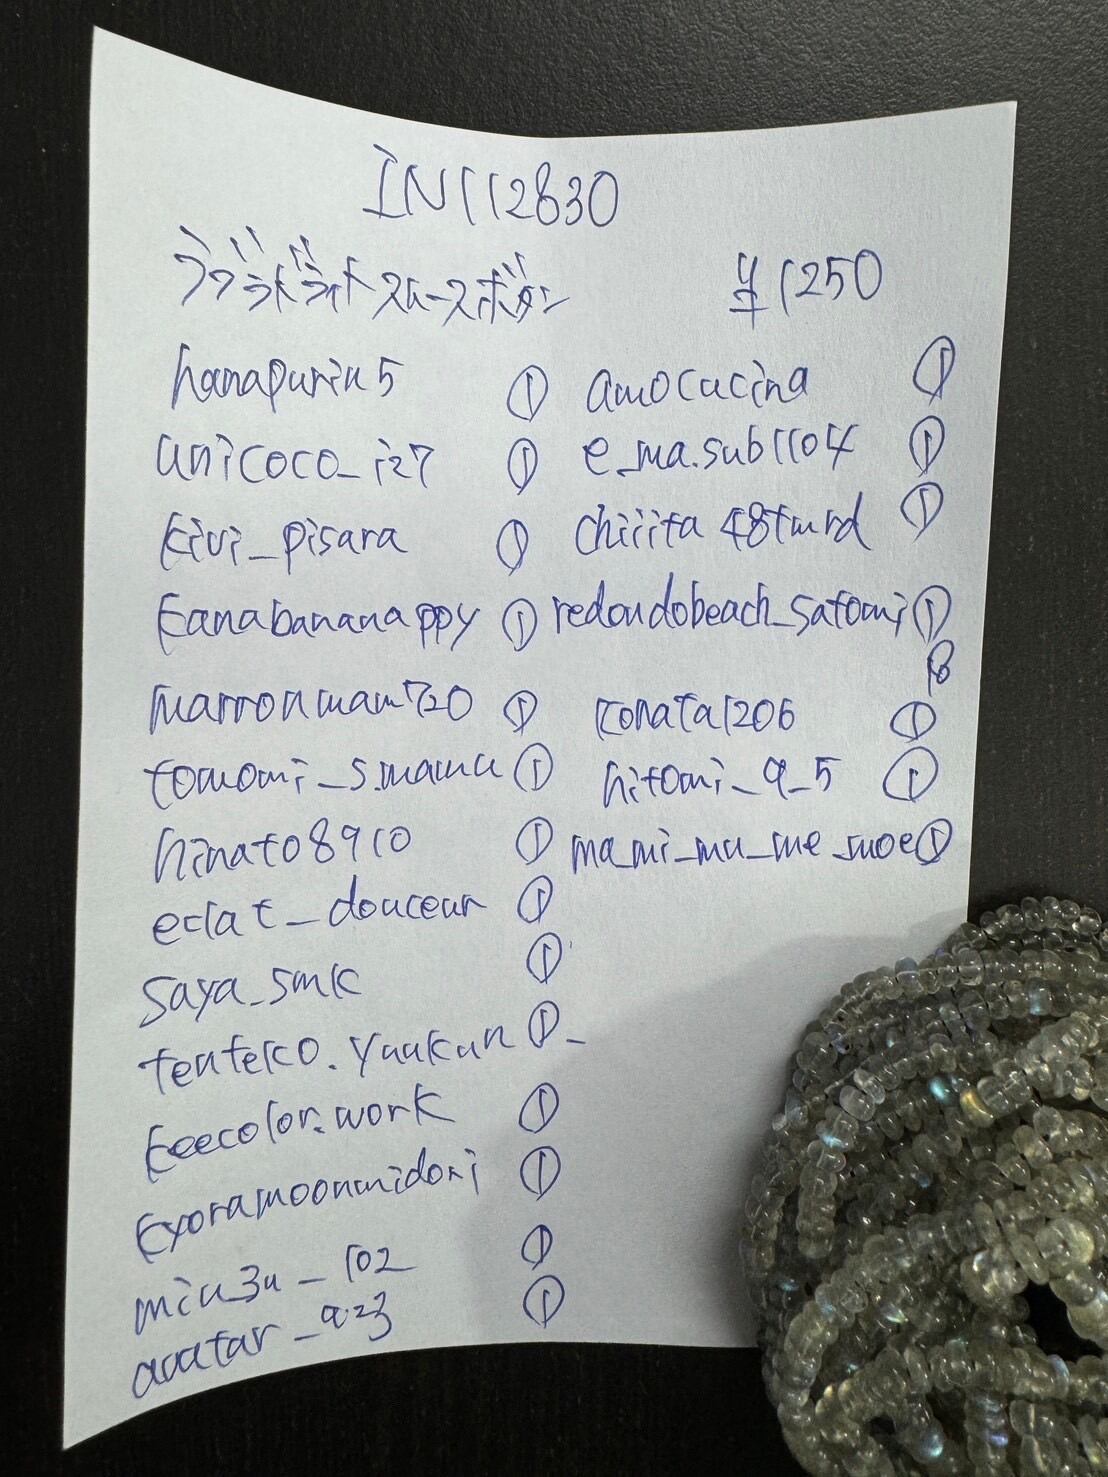 IN112830
ラブラドライト スムースボタン ¥1250
hanapurin5 ①
unicoco_i27 ①
kivi_pisara ①
kanabananappy ①
marronmam720 ①
tomomi_s.mama ①
hinato8910 ①
eclat_douceur ①
saya_smk ①
tenteko.yuukun ①
keecolor.work ①
kyoramoonmidori ①
miu3u_102 ①
avatar_923 ①
amocucina ①
e_ma.sub1104 ①
chiiita48tmrd ①
redondobeach_satomi ①
konata1206 ①
hitomi_9_5 ①
ma_mi_mu_me_moe ①